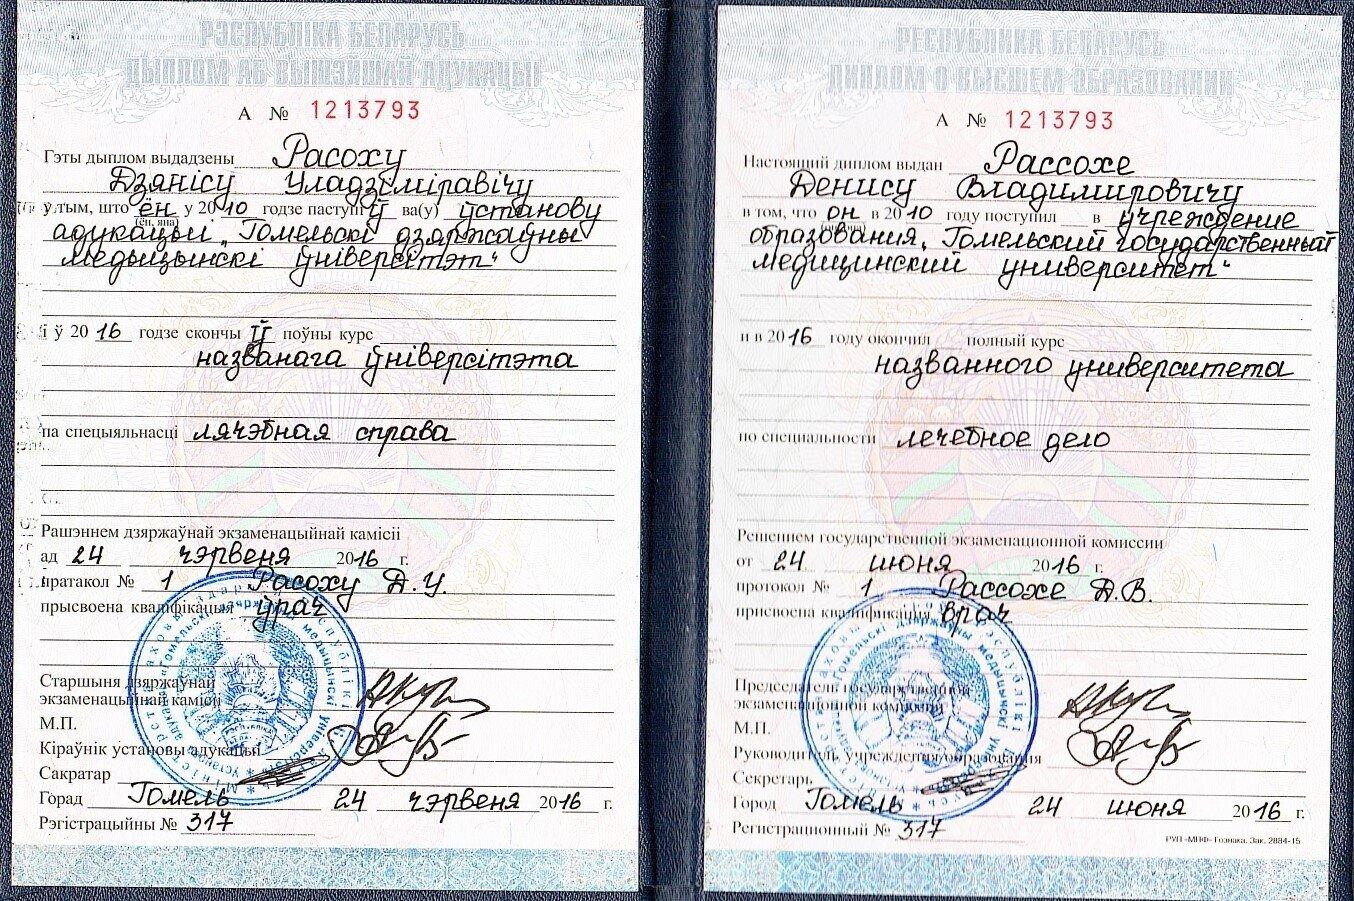 РЭСПУБЛІКА БЕЛАРУСЬ
ДЫПЛОМ АБ ВЫШЭЙШАЙ АДУКАЦЫІ
А № 1213793
Гэты дыплом выдадзены Расоху
Дзянісу Уладзіміравічу
ў тым, што ён у 2010 годзе паступіў ва(у) ўстанову
(ён, яна)
адукацыі „Гомельскі дзяржаўны
медыцынскі ўніверсітэт“
і ў 2016 годзе скончыў поўны курс
названага ўніверсітэта
па спецыяльнасці лячэбная справа
Рашэннем дзяржаўнай экзаменацыйнай камісіі
ад 24 чэрвеня 2016 г.
пратакол № 1 Расоху Д.У.
прысвоена кваліфікацыя ўрач
Старшыня дзяржаўнай
экзаменацыйнай камісіі
М.П.
Кіраўнік установы адукацыі
Сакратар
Горад Гомель 24 чэрвеня 2016 г.
Рэгістрацыйны № 317
РЕСПУБЛИКА БЕЛАРУСЬ
ДИПЛОМ О ВЫСШЕМ ОБРАЗОВАНИИ
А № 1213793
Настоящий диплом выдан Рассохе
Денису Владимировичу
в том, что он в 2010 году поступил в учреждение
образования „Гомельский государственный
медицинский университет“
и в 2016 году окончил полный курс
названного университета
по специальности лечебное дело
Решением государственной экзаменационной комиссии
от 24 июня 2016 г.
протокол № 1 Рассохе Д.В.
присвоена квалификация врач
Председатель государственной
экзаменационной комиссии
М.П.
Руководитель учреждения образования
Секретарь
Город Гомель 24 июня 2016 г.
Регистрационный № 317
РУП «МПФ» Гознака. Зак. 2884-15.